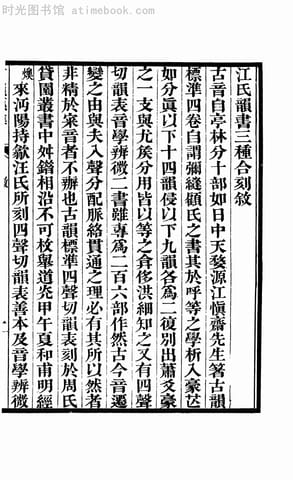 时光图书馆 www.atimebook.com
江氏韻書三種合刻敘
古音自亭林分十部如日中天婺源江愼齋先生箸古韻
標準四卷自謂彌縫顧氏之書其於呼等之學析入豪芒
如分眞以下十四韻侵以下九韻各爲二復別出蕭爻豪
之一支與尤矦分用皆以等之弇侈洪細知之又有四聲
切韻表音學辨微二書雖專爲二百六部作然古今音遷
變之由與夫入聲分配脈絡貫通之理必有其所以然者
非精於宷音者不辦也古韻標準四聲切韻表刻於周氏
貸園叢書中舛錯相沿不可枚舉道光甲午夏和甫明經
燠來沔陽持歙汪氏所刻四聲切韻表善本及音學辨微
敘
一